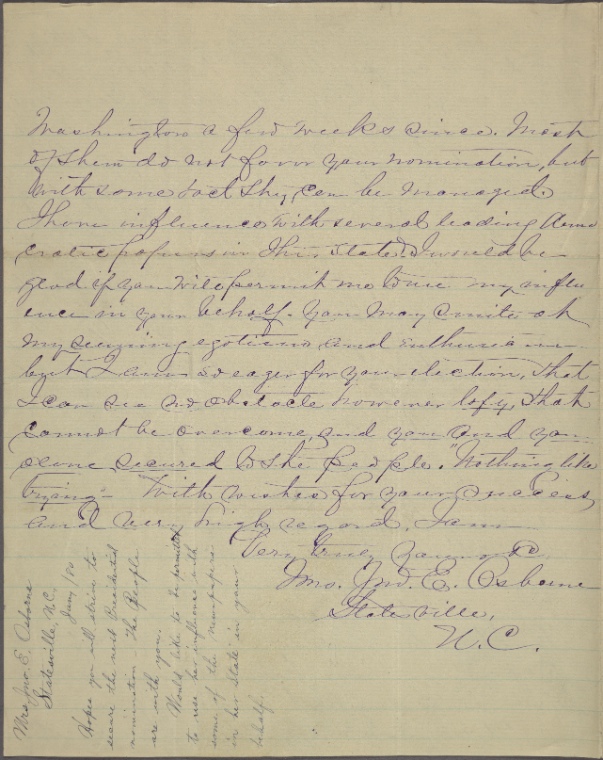 Washington a few weeks since. Most
of them do not favor your nomination, but
with some tact they can be managed.
I have influence with several leading Demo
cratic papers in this State. I would be
glad if you will permit me to use my influ
ence in your behalf. You may smile at
my seeming egotism and enthusiasm
but I am so eager for your election, that
I can see no obstacle however lofty, that
cannot be overcome, and you and you
alone secured to the people. "Nothing like
trying" — With wishes for your success
and very high regard, I am
Very truly yours &c
Mrs. Jno. E. Osborne
Statesville,
N.C.
Mrs. Jno. E. Osborne
Statesville N.C.
Hopes you will strive to
secure the next Presidential
nomination — The People
are with you.
Would like to be permitted
to use her influence with
some of the newspapers
in her State in your
behalf.